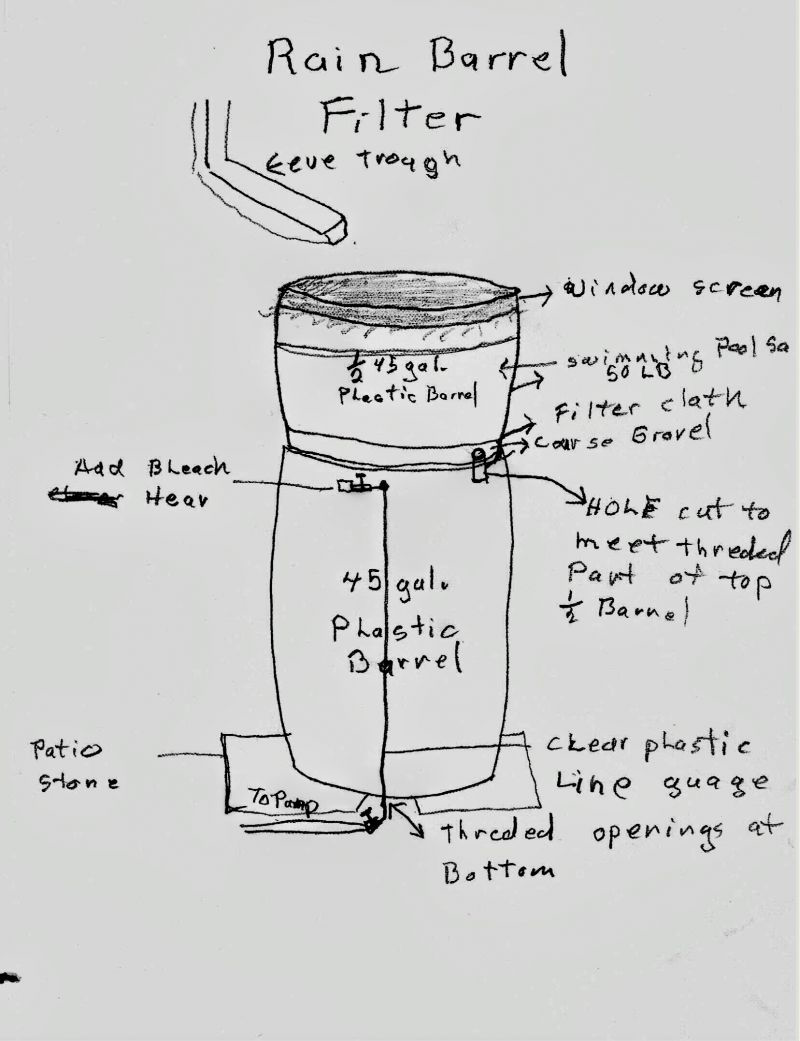 Rain Barrel
Filter
Eeve trough
Window screen
swimming Pool Sa
50 LB
1/2 45 gal.
Plastic Barrel
Filter cloth
Course Gravel
Add Bleach
Hear
HOLE cut to
meet threded
Part of top
1/2 Barrel
45 gal.
Plastic
Barrel
Patio
Stone
To Pump
clear plastic
Line guage
threded openings at
Bottom